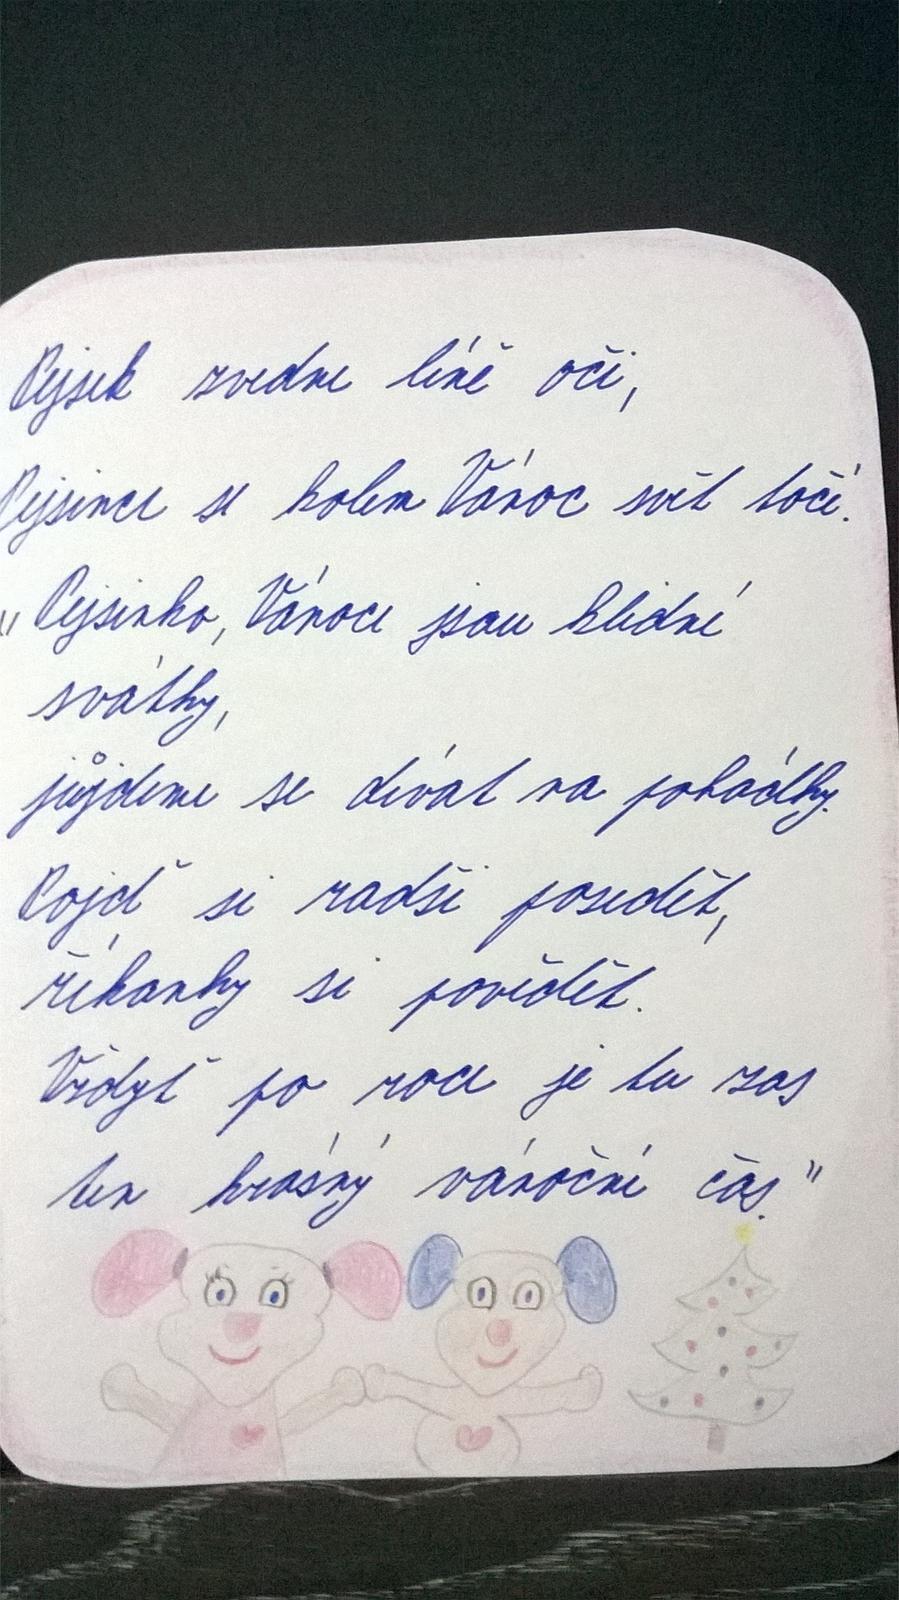 Pejsek zvedne líně oči,
Pejsince se kolem Vánoc svět točí.
"Pejsinko, Vánoce jsou klidné
svátky,
půjdeme se dívat na pohádky.
Pojď si radši posedět,
říkanky si povědět.
Vždyť po roce je tu zas
ten krásný vánoční čas."